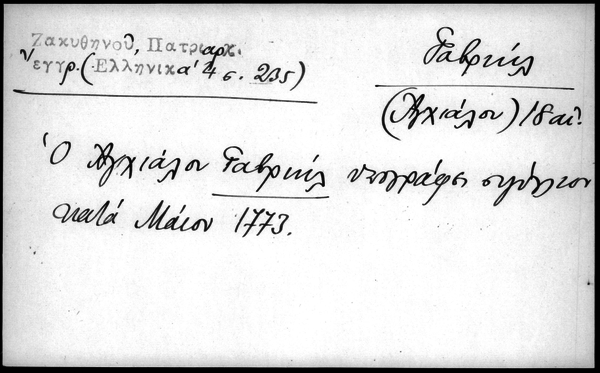 Ζακυθηνοῦ, Πατριαρχ.
ἔγγρ. (Ἑλληνικὰ 4 σ. 235)
Γαβριήλ
(Ἀγχιάλου) 18 αἰ.
Ὁ Ἀγχιάλου Γαβριήλ ὑπογράφει σιγίλλιον
κατά Μάϊον 1773.